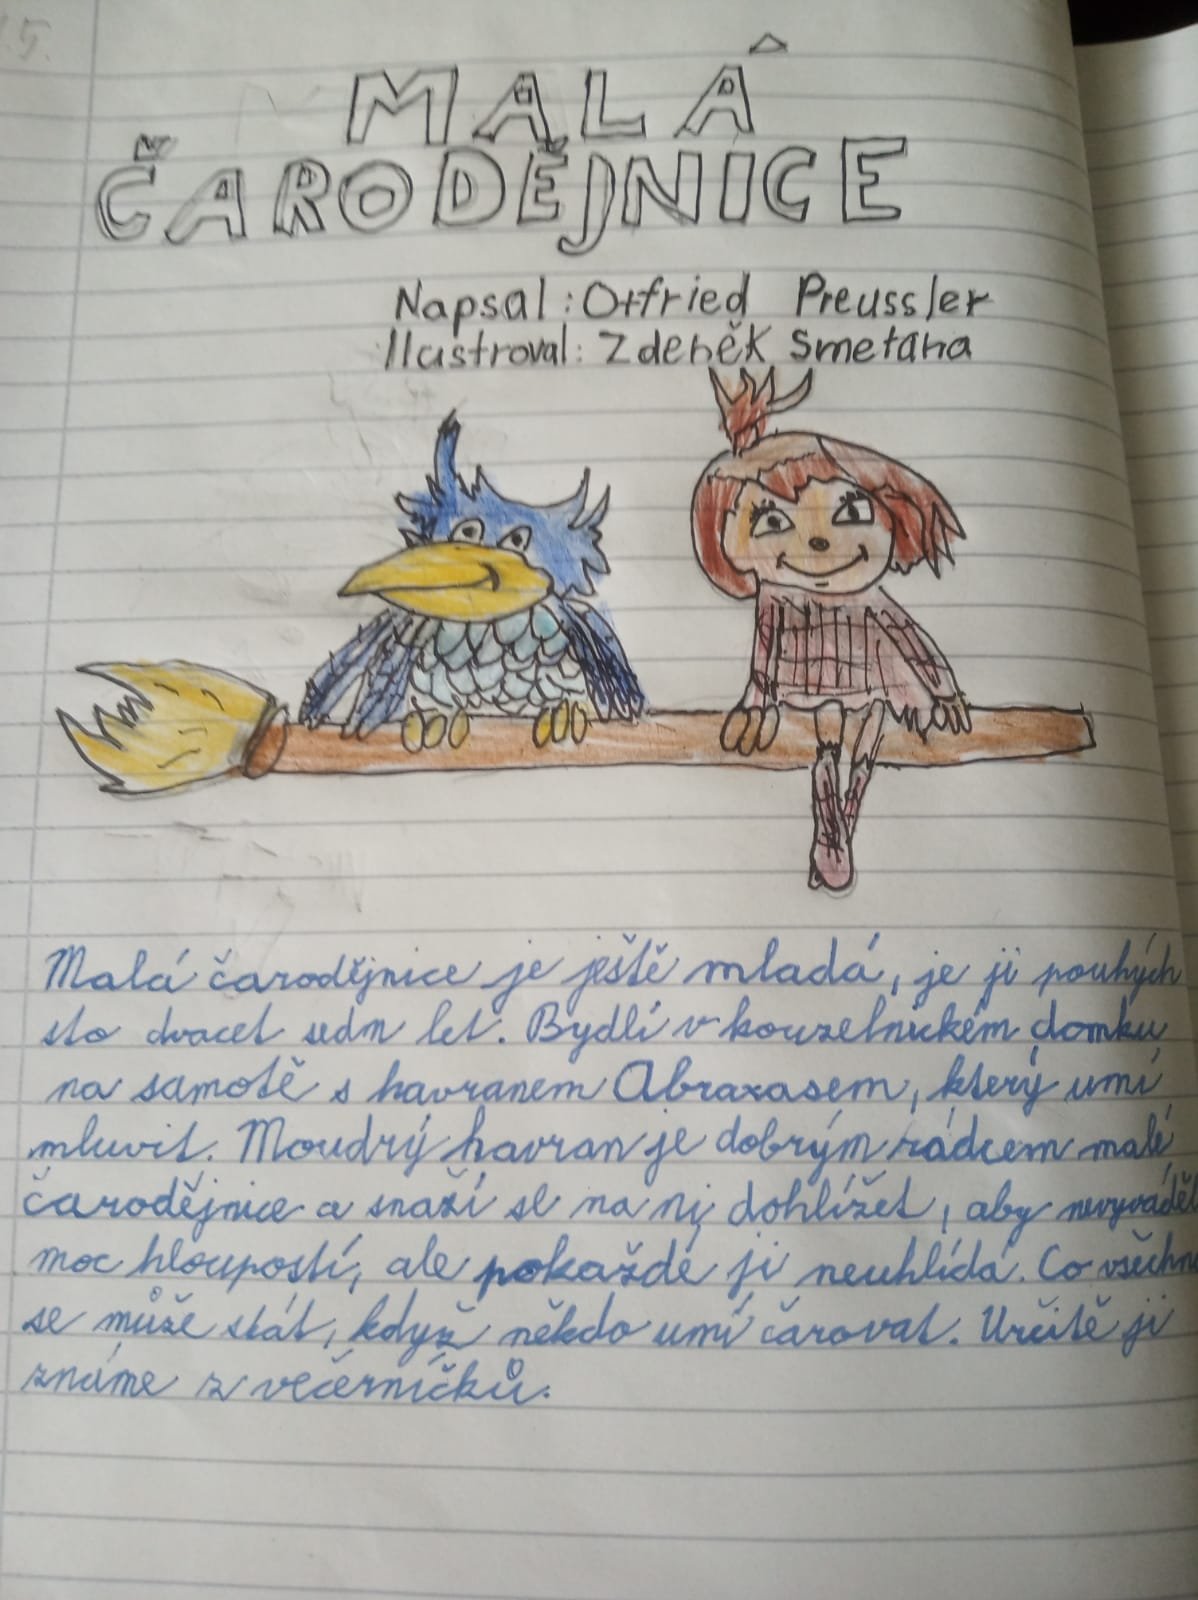 5.
MALÁ
ČARODĚJNICE
Napsal: Otfried Preussler
Ilustroval: Zdeněk Smetana
Malá čarodějnice je ještě mladá, je jí pouhých
sto dvacet sedm let. Bydlí v kouzelnickém domku
na samotě s havranem Abraxasem, který umí
mluvit. Moudrý havran je dobrým rádcem malé
čarodějnice a snaží se na ni dohlížet, aby nevyváděl
moc hloupostí, ale pokaždé ji neuhlídá. Co všechn
se může stát, když někdo umí čarovat. Určitě ji
známe z večerníčků.